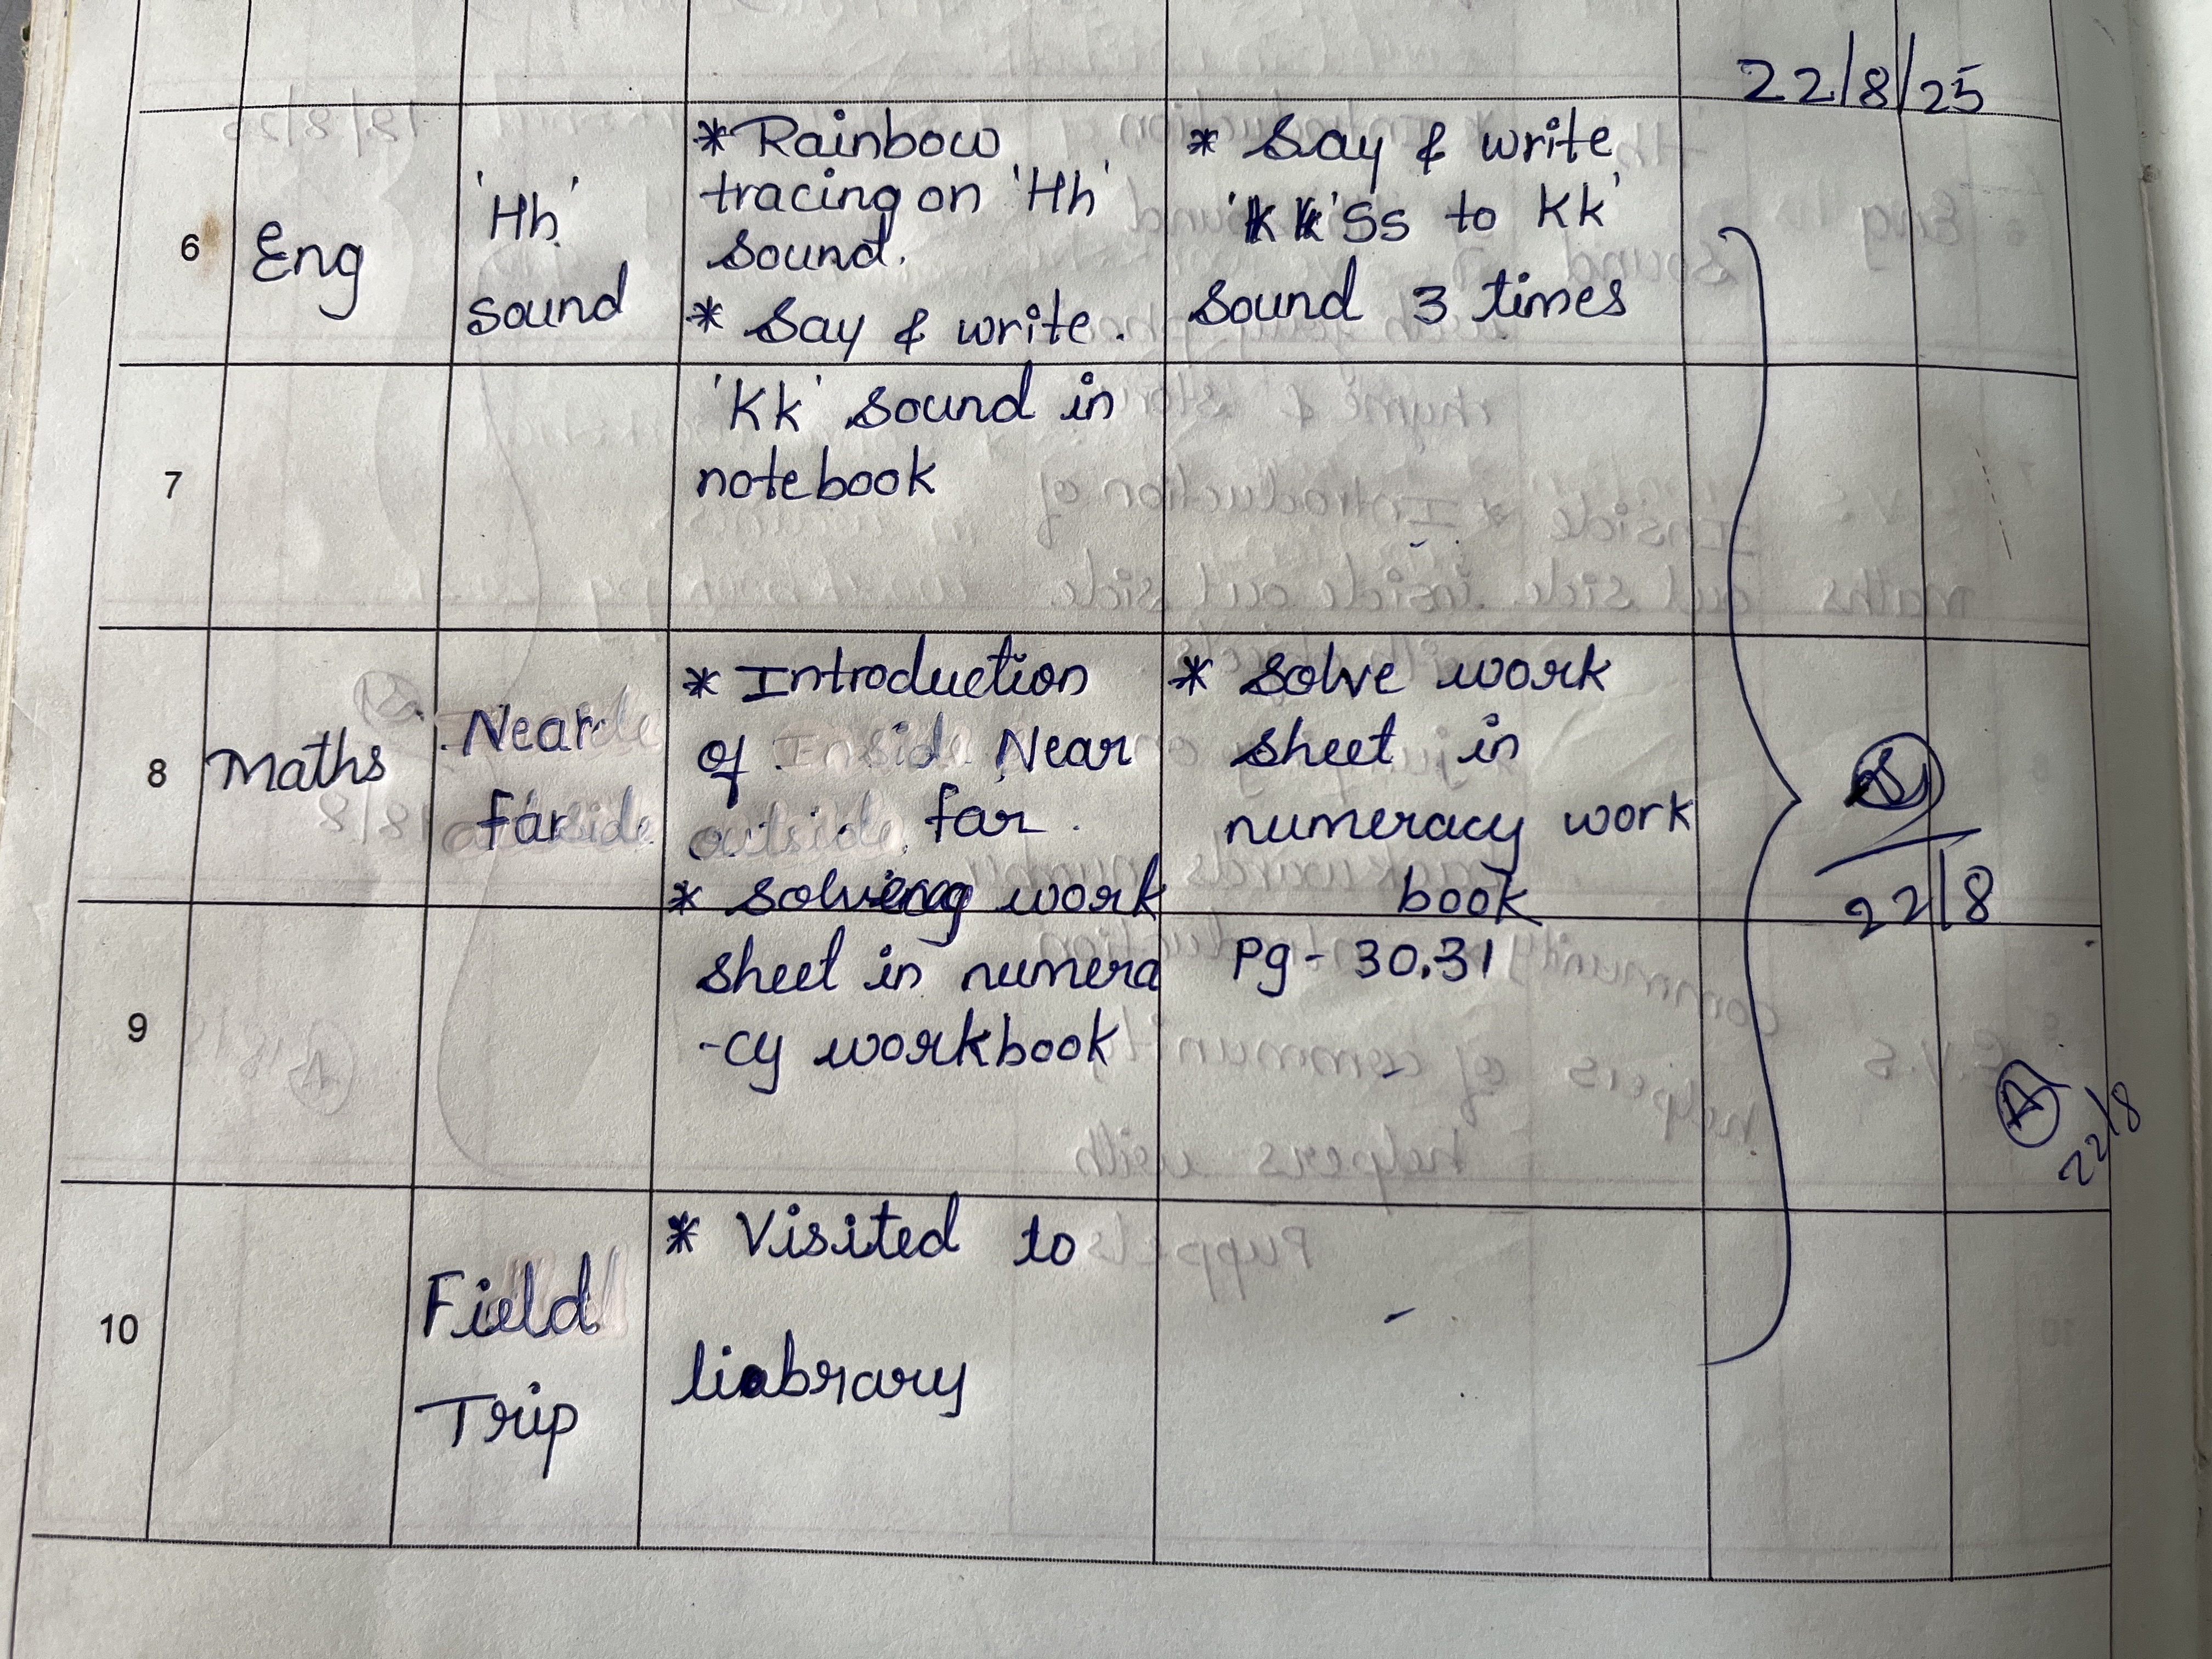 22/8/25
6
Eng
'Hh'
sound
* Rainbow
tracing on 'Hh'
sound.
* Say & write.
* Say & write
'Ss to Kk'
sound 3 times
7
'Kk' sound in
notebook
8
Maths
Near
far
* Introduction
of Near
far.
* solving work
* solve work
sheet in
numeracy work
book
22/8
9
sheet in numera
-cy workbook
Pg - 30,31
A
22/8
10
Field
Trip
* Visited to
library